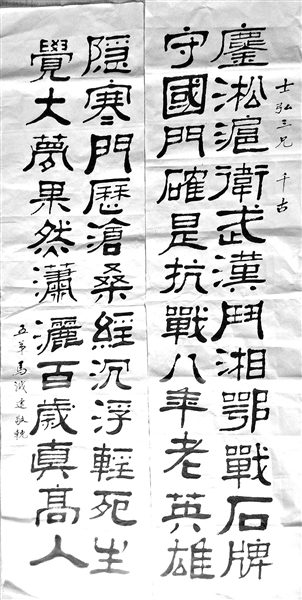 士弘三兄 千古
鏖淞滬衛武漢鬥湘鄂戰石牌
守國門確是抗戰八年老英雄
隱寒門歷滄桑經沉浮輕死生
覺大夢果然瀟灑百歲真高人
五弟馬誠敬輓